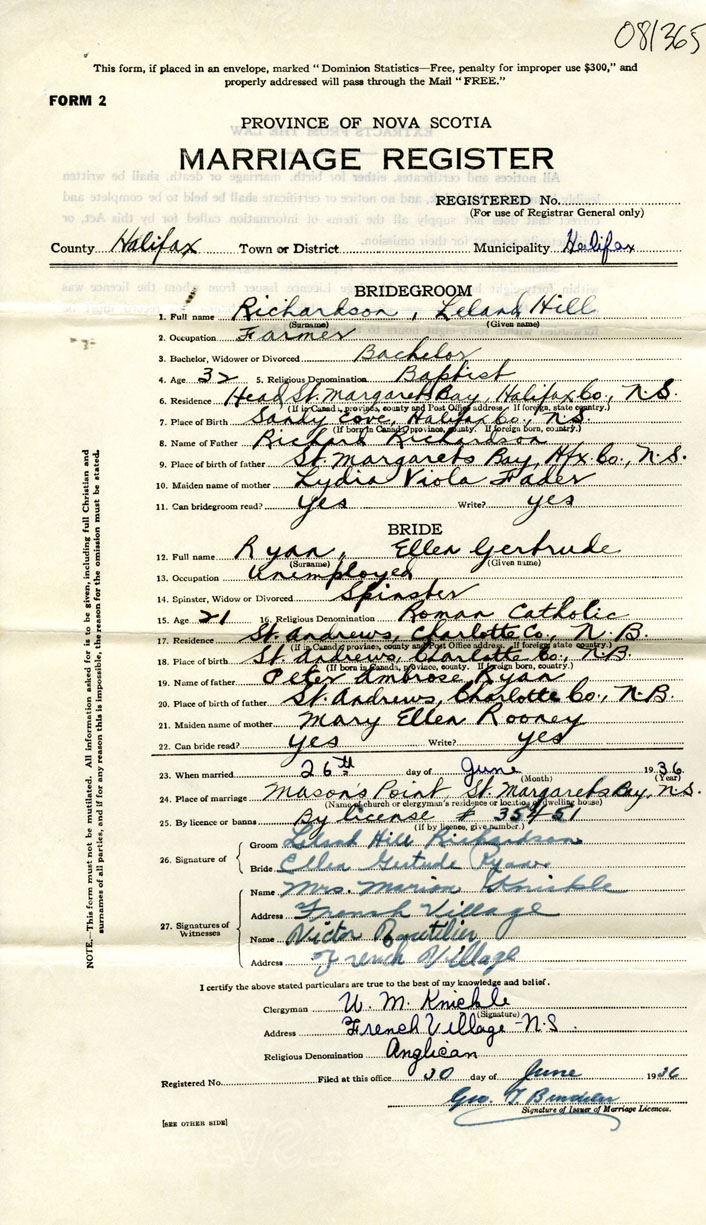 081365
This form, if placed in an envelope, marked "Dominion Statistics—Free, penalty for improper use $300," and
properly addressed will pass through the Mail "FREE."
FORM 2
PROVINCE OF NOVA SCOTIA
MARRIAGE REGISTER
REGISTERED No.
(For use of Registrar General only)
County Halifax Town or District Municipality Halifax
BRIDEGROOM
1. Full name Richardson, Leland Hill
(Surname) (Given name)
2. Occupation Farmer
3. Bachelor, Widower or Divorced Bachelor
4. Age 32 5. Religious Denomination Baptist
6. Residence Head St. Margarets Bay, Halifax Co., N.S.
(If in Canada, province, county and Post Office address. If foreign, state country.)
7. Place of Birth Sandy Cove, Halifax Co., N.S.
(If born in Canada, province, county. If foreign born, country.)
8. Name of Father Richard Richardson
9. Place of birth of father St. Margarets Bay, Hfx. Co., N.S.
10. Maiden name of mother Lydia Viola Fader
11. Can bridegroom read? yes Write? yes
BRIDE
12. Full name Ryan, Ellen Gertrude
(Surname) (Given name)
13. Occupation Unemployed
14. Spinster, Widow or Divorced Spinster
15. Age 21 16. Religious Denomination Roman Catholic
17. Residence St. Andrews, Charlotte Co., N.B.
(If in Canada, province, county and Post Office address. If foreign, state country.)
18. Place of birth St. Andrews, Charlotte Co., N.B.
(If born in Canada, province, county. If foreign born, country.)
19. Name of father Peter Ambrose Ryan
20. Place of birth of father St. Andrews, Charlotte Co., N.B.
21. Maiden name of mother Mary Ellen Rooney
22. Can bride read? yes Write? yes
23. When married 26th day of June 1936
(Month) (Year)
24. Place of marriage Masons Point St. Margarets Bay, N.S.
(Name of church or clergyman's residence or location of dwelling house)
25. By licence or banns By license # 35451
(If by licence, give number.)
26. Signature of
Groom Leland Hill Richardson
Bride Ellen Gertude Ryan
27. Signatures of Witnesses
Name Mrs. Marion Knickle
Address French Village
Name Victor Boutilier
Address French Village
I certify the above stated particulars are true to the best of my knowledge and belief.
Clergyman W. M. Knickle
(Signature)
Address French Village - N.S.
Religious Denomination Anglican
Registered No. Filed at this office 30 day of June 1936
Geo. T
Signature of Issuer of Marriage Licences.
[SEE OTHER SIDE]
NOTE.—This form must not be mutilated. All information asked for is to be given, including full Christian and
surnames of all parties, and if for any reason this is impossible, the reason for the omission must be stated.